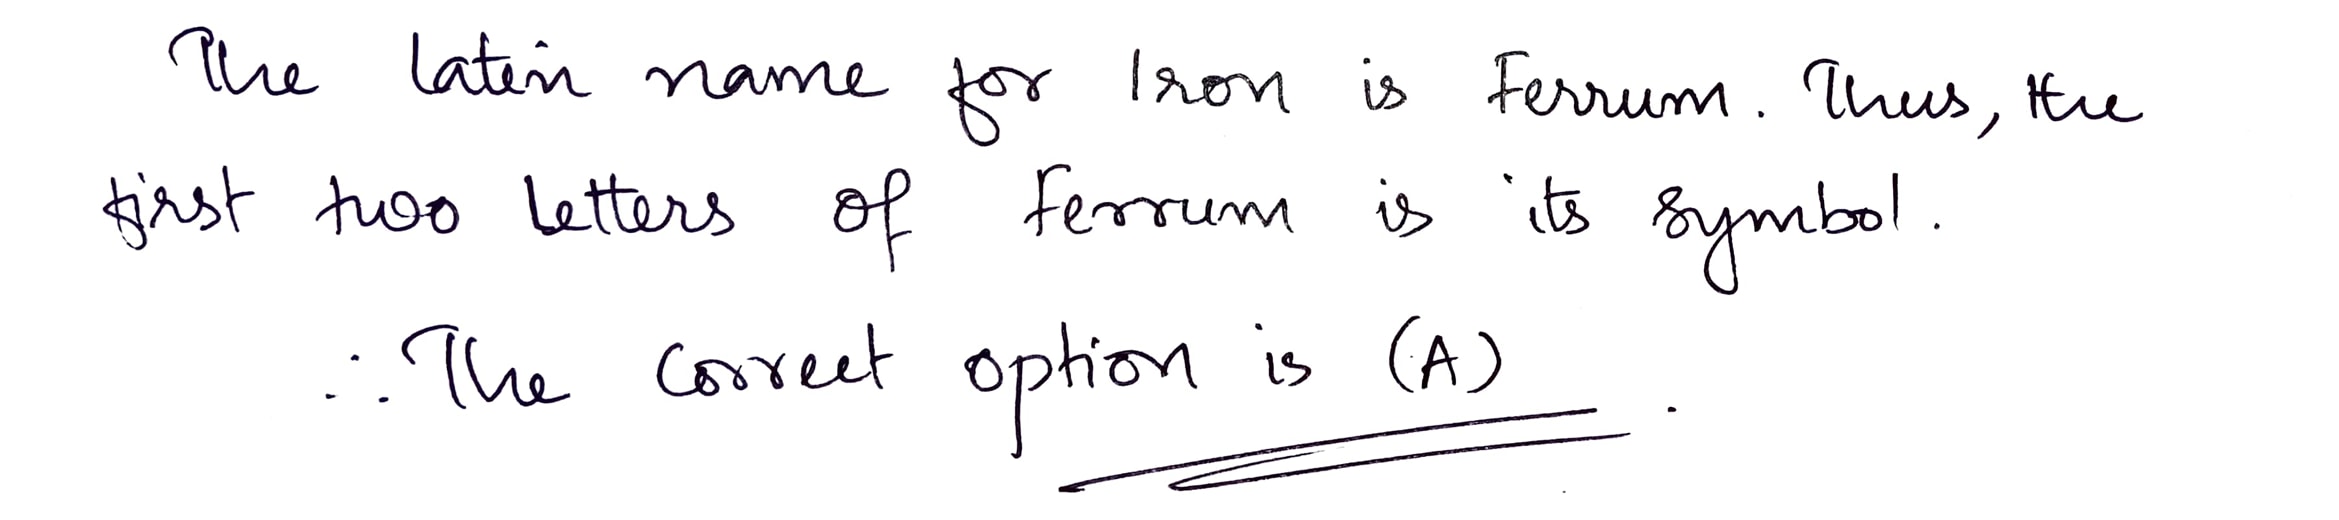 The latin name for Iron is Ferrum. Thus, the
first two letters of Ferrum is its symbol.
∴ The correct option is (A).